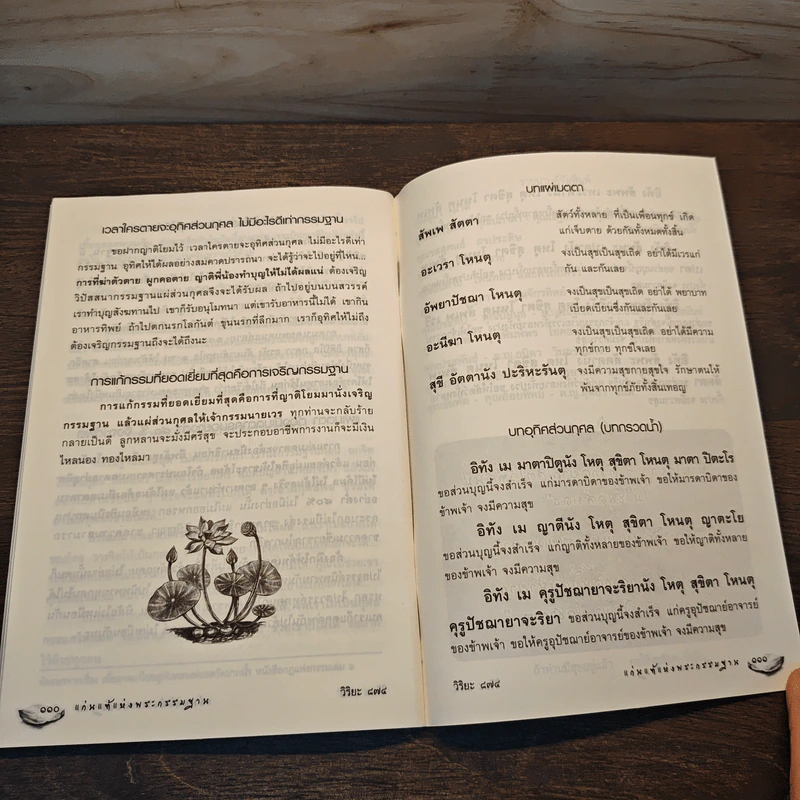 เวลาใครตายจะอุทิศส่วนกุศล ไม่มีอะไรดีเท่ากรรมฐาน
ขอฝากญาติโยมไว้ เวลาใครตายจะอุทิศส่วนกุศล ไม่มีอะไรดีเท่า
กรรมฐาน อุทิศให้ได้ผลอย่างสมคาดปรารถนา จะได้รู้ว่าจะไปอยู่ที่ไหน...
การที่ฆ่าตัวตาย ผูกคอตาย ญาติพี่น้องทำบุญให้ไม่ได้ผลแน่ ต้องเจริญ
วิปัสสนากรรมฐานแผ่ส่วนกุศลจึงจะได้รับผล ถ้าไปอยู่บนบนสวรรค์
เราทำบุญสังฆทานไป เขาก็รับอนุโมทนา แต่เขารับอาหารนี้ไม่ได้ เขากิน
อาหารทิพย์ ถ้าไปตกนรกโลกันต์ ขุนนรกที่ลึกมาก เราก็อุทิศให้ไม่ถึง
ต้องเจริญกรรมฐานถึงจะได้ถึงนะ
การแก้กรรมที่ยอดเยี่ยมที่สุดคือการเจริญกรรมฐาน
การแก้กรรมที่ยอดเยี่ยมที่สุดคือการที่ญาติโยมมานั่งเจริญ
กรรมฐาน แล้วแผ่ส่วนกุศลให้เจ้ากรรมนายเวร ทุกท่านจะกลับร้าย
กลายเป็นดี ลูกหลานจะมั่งมีศรีสุข จะประกอบอาชีพการงานก็จะมีเงิน
ไหลนอง ทองไหลมา
วิริยะ ๘๗๔
๑๑๐ แก่นแท้แห่งพระกรรมฐาน
บทแผ่เมตตา
สัพเพ สัตตา สัตว์ทั้งหลาย ที่เป็นเพื่อนทุกข์ เกิด
แก่เจ็บตาย ด้วยกันทั้งหมดทั้งสิ้น
อะเวรา โหนตุ จงเป็นสุขเป็นสุขเถิด อย่าได้มีเวรแก่
กัน และกันเลย
อัพยาปัชฌา โหนตุ จงเป็นสุขเป็นสุขเถิด อย่าได้ พยาบาท
เบียดเบียนซึ่งกันและกันเลย
อะนีฆา โหนตุ จงเป็นสุขเป็นสุขเถิด อย่าได้มีความ
ทุกข์กาย ทุกข์ใจเลย
สุขี อัตตานัง ปะริหะรันตุ จงมีความสุขกายสุขใจ รักษาตนให้
พ้นจากทุกข์ภัยทั้งสิ้นเทอญ
บทอุทิศส่วนกุศล (บทกรวดน้ำ)
อิทัง เม มาตาปิตูนัง โหตุ สุขิตา โหนตุ มาตา ปิตะโร
ขอส่วนบุญนี้จงสำเร็จ แก่มารดาบิดาของข้าพเจ้า ขอให้มารดาบิดาของ
ข้าพเจ้า จงมีความสุข
อิทัง เม ญาตีนัง โหตุ สุขิตา โหนตุ ญาตะโย
ขอส่วนบุญนี้จงสำเร็จ แก่ญาติทั้งหลายของข้าพเจ้า ขอให้ญาติทั้งหลาย
ของข้าพเจ้า จงมีความสุข
อิทัง เม คุรูปัชฌายาจะริยานัง โหตุ สุขิตา โหนตุ
คุรูปัชฌายาจะริยา ขอส่วนบุญนี้จงสำเร็จ แก่ครูอุปัชฌาย์อาจารย์
ของข้าพเจ้า ขอให้ครูอุปัชฌาย์อาจารย์ของข้าพเจ้า จงมีความสุข
วิริยะ ๘๗๔
แก่นแท้แห่งพระกรรมฐาน ๑๑๑